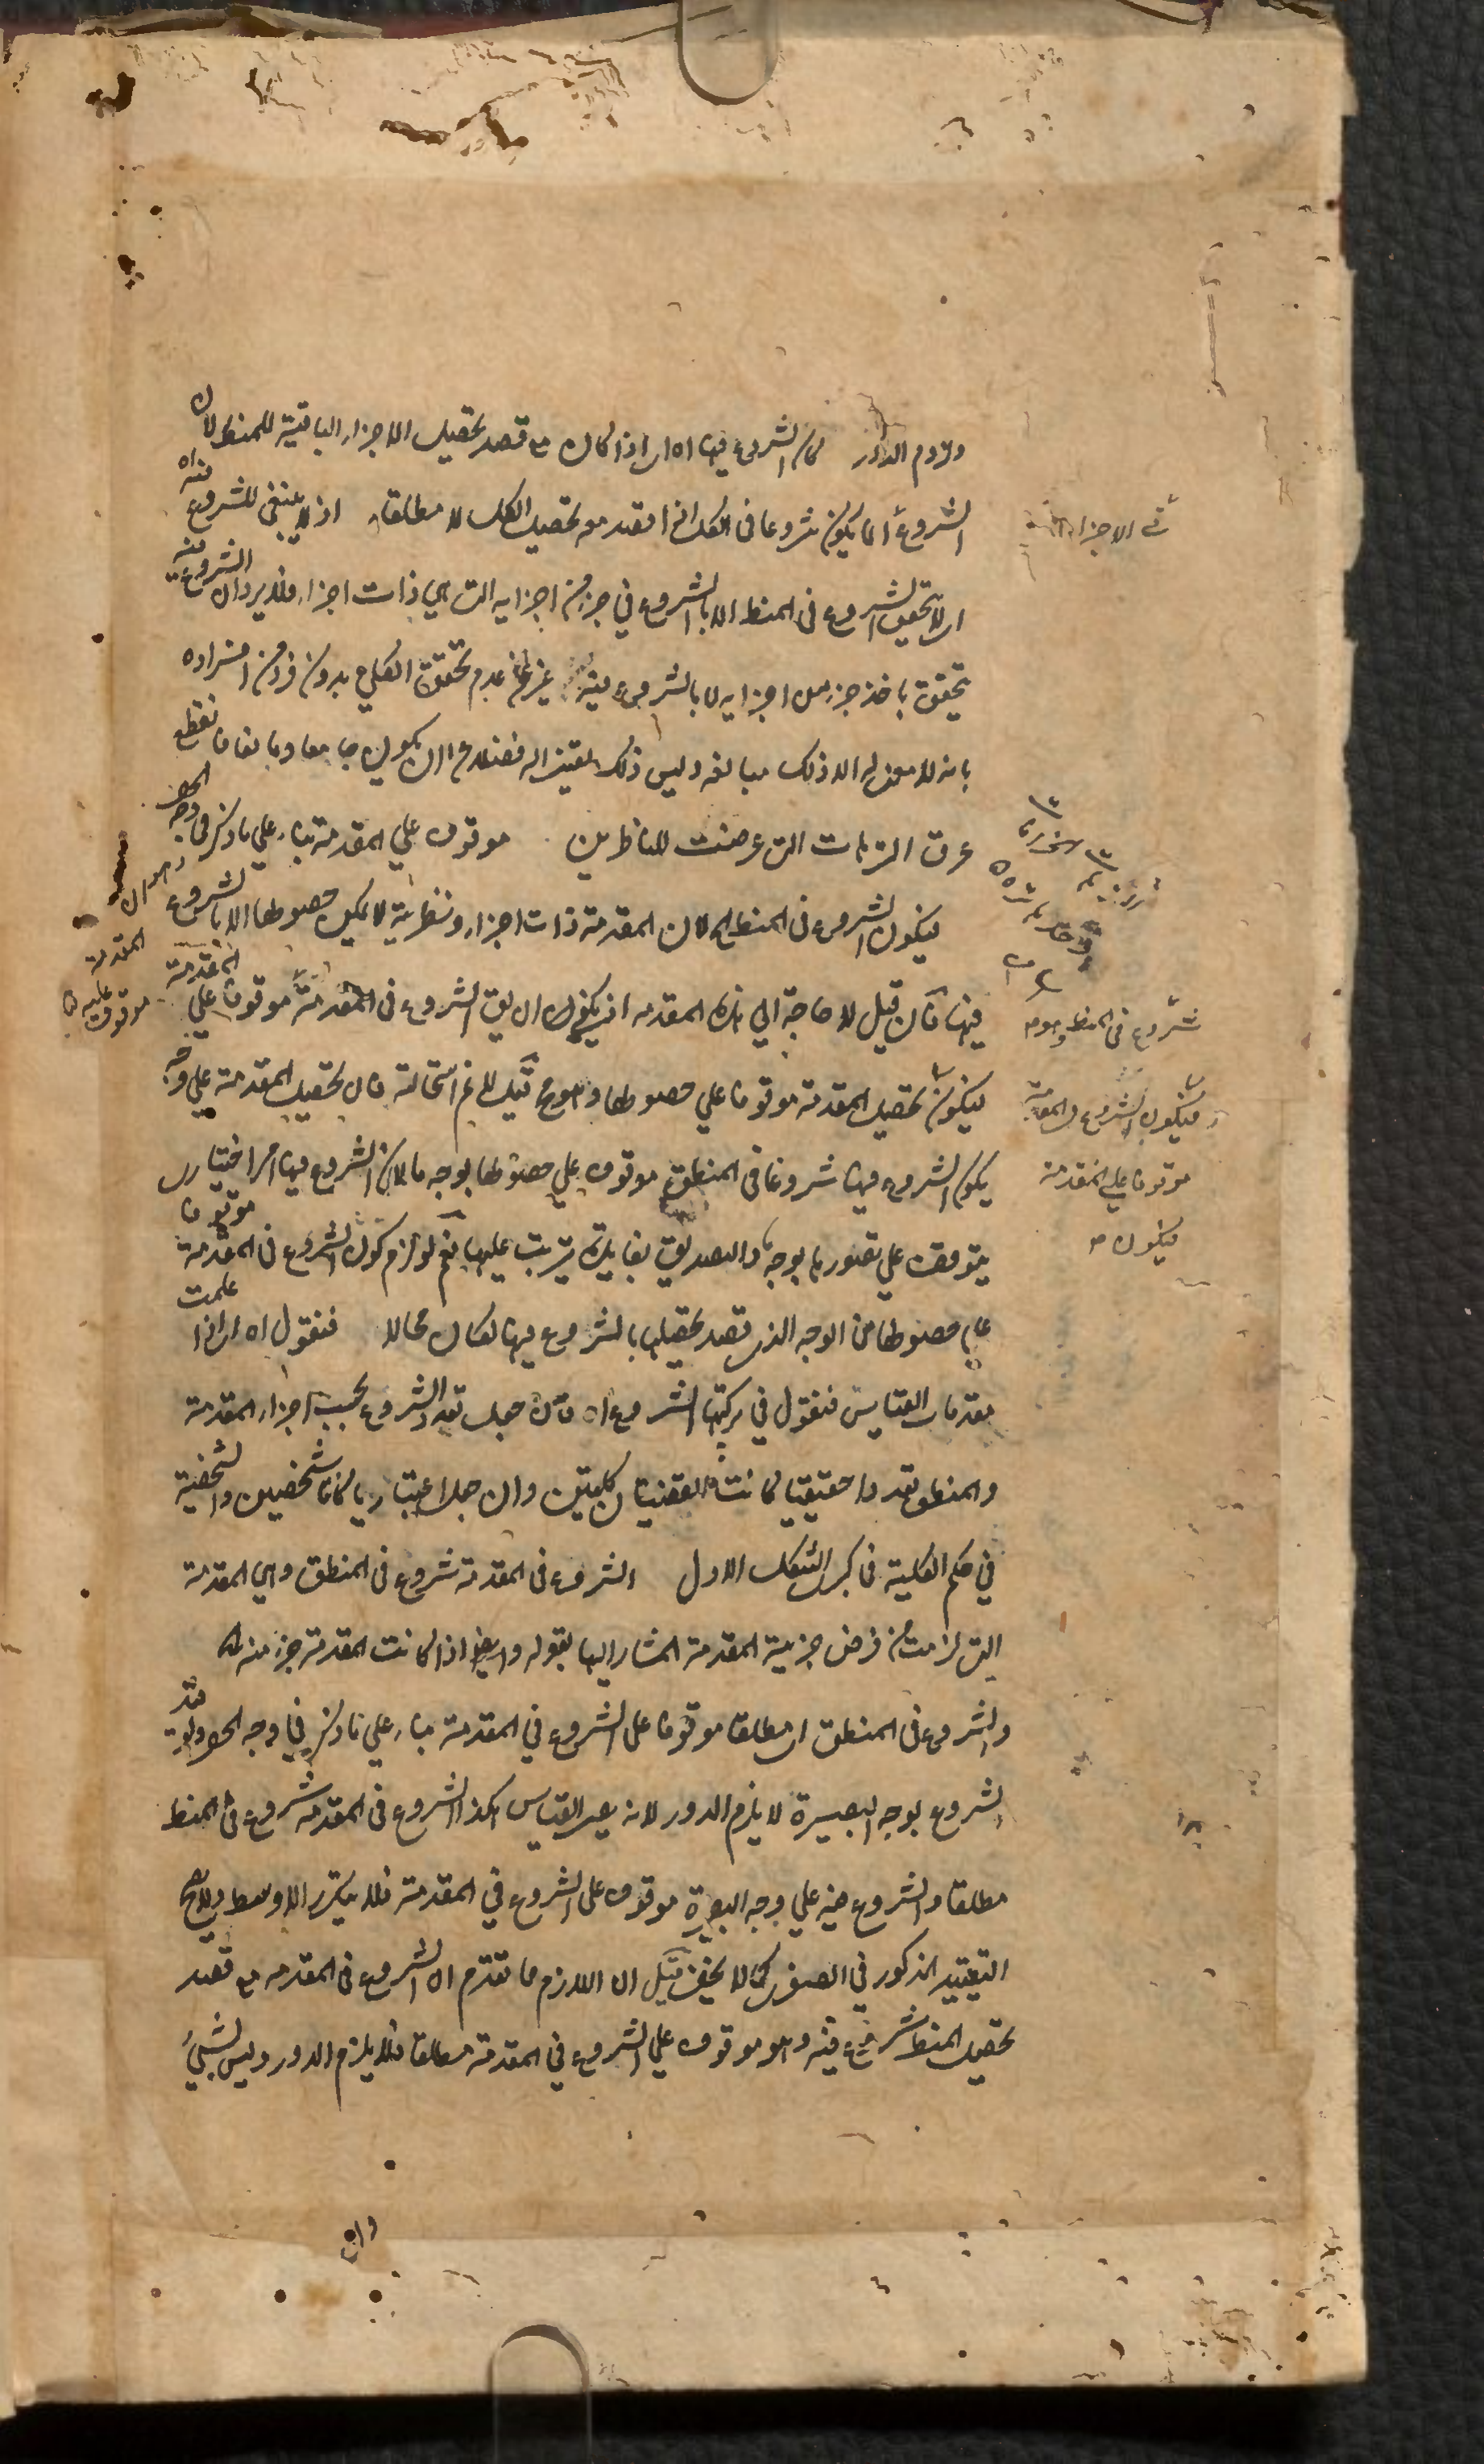 ولزوم الدور كان الشروع فيها اه اي اذا كان مع قصد تحصيل الاجزاء الباقية للمنطق لان
الشروع انما يكون شروعا في الكل اذا قصد معه تحصيل الكل لا مطلقا اذ لا ينبغي للشروع فيه اه
اي لا تحقق للشروع في المنطق الا بالشروع في جزء من اجزايه التي هي ذات اجزاء فلا يرد ان الشروع فيه
يتحقق باخذ جزء من اجزايه لا بالشروع فيه عدم تحقق الكلي بدون فرد من افراده
بانه لا معنى له الا ذلك مبالغة وليس ذلك تعريفا له فضلا عن ان يكون جامعا ومانعا فانقطع
عرق الشبهات التي عرضت للناظرين موقوف علي المقدمة بناء علي ما ذكر في وجه الحصر
فيكون الشروع في المنطق اه لان المقدمة ذات اجزاء ونظرية لا يمكن حصولها الا بالشروع
فيها فان قيل لا حاجة الي هذه المقدمة اذ يكفي ان يق الشروع في المقدمة موقوفا علي المقدمة
فيكون تحصيل المقدمة موقوفا علي حصولها وهو مح قيل لا نم استحالته فان تحصيل المقدمة علي وجه
يكون الشروع فيها شروعا في المنطق موقوف علي حصولها بوجه ما لان الشروع فيها امر اختياري
يتوقف علي تصورها بوجه والتصديق بفايدة يترتب عليها نعم لو لزم كون الشروع في المقدمة موقوفا
علي حصولها من الوجه الذي قصد تحصيلها بالشروع فيها لكان محالا فنقول اه اي اذا علمت
مقدمات القياس فنقول في تركيبها الشروع اه فان جعل تعدد الشروع بحسب اجزاء المقدمة
والمنطق تعددا حقيقيا كانت القضيتان كليتين وان جعل اعتباريا كانتا شخصيتين والشخصية
في حكم الكلية في كبري الشكل الاول الشروع في المقدمة شروع في المنطق وهي المقدمة
التي لزمت من فرض جزئية المقدمة المشار اليها بقوله وايضا اذا كانت المقدمة جزء منه اه
والشروع في المنطق اي مطلقا موقوفا على الشروع في المقدمة بناء علي ما ذكر في وجه الحصر ولو قيد
الشروع بوجه البصيرة لا يلزم الدور لانه يصير القياس هكذا الشروع في المقدمة شروع في المنطق
مطلقا والشروع فيه علي وجه البصيرة موقوف على الشروع في المقدمة فلا يتكرر الاوسط ولا يصح
التقييد المذكور في الصغرى كما لا يخفى قيل ان اللازم مما تقدم ان الشروع في المقدمة مع قصد
تحصيل المنطق شروع فيه وهو موقوف علي الشروع في المقدمة مطلقا فلا يلزم الدور وليس بشيء
في الاجزاء
شروع في المنطق وهو
فيكون الشروع في المقدمة
موقوفا علي المقدمة
فيكون
المقدمة
موقوف عليه